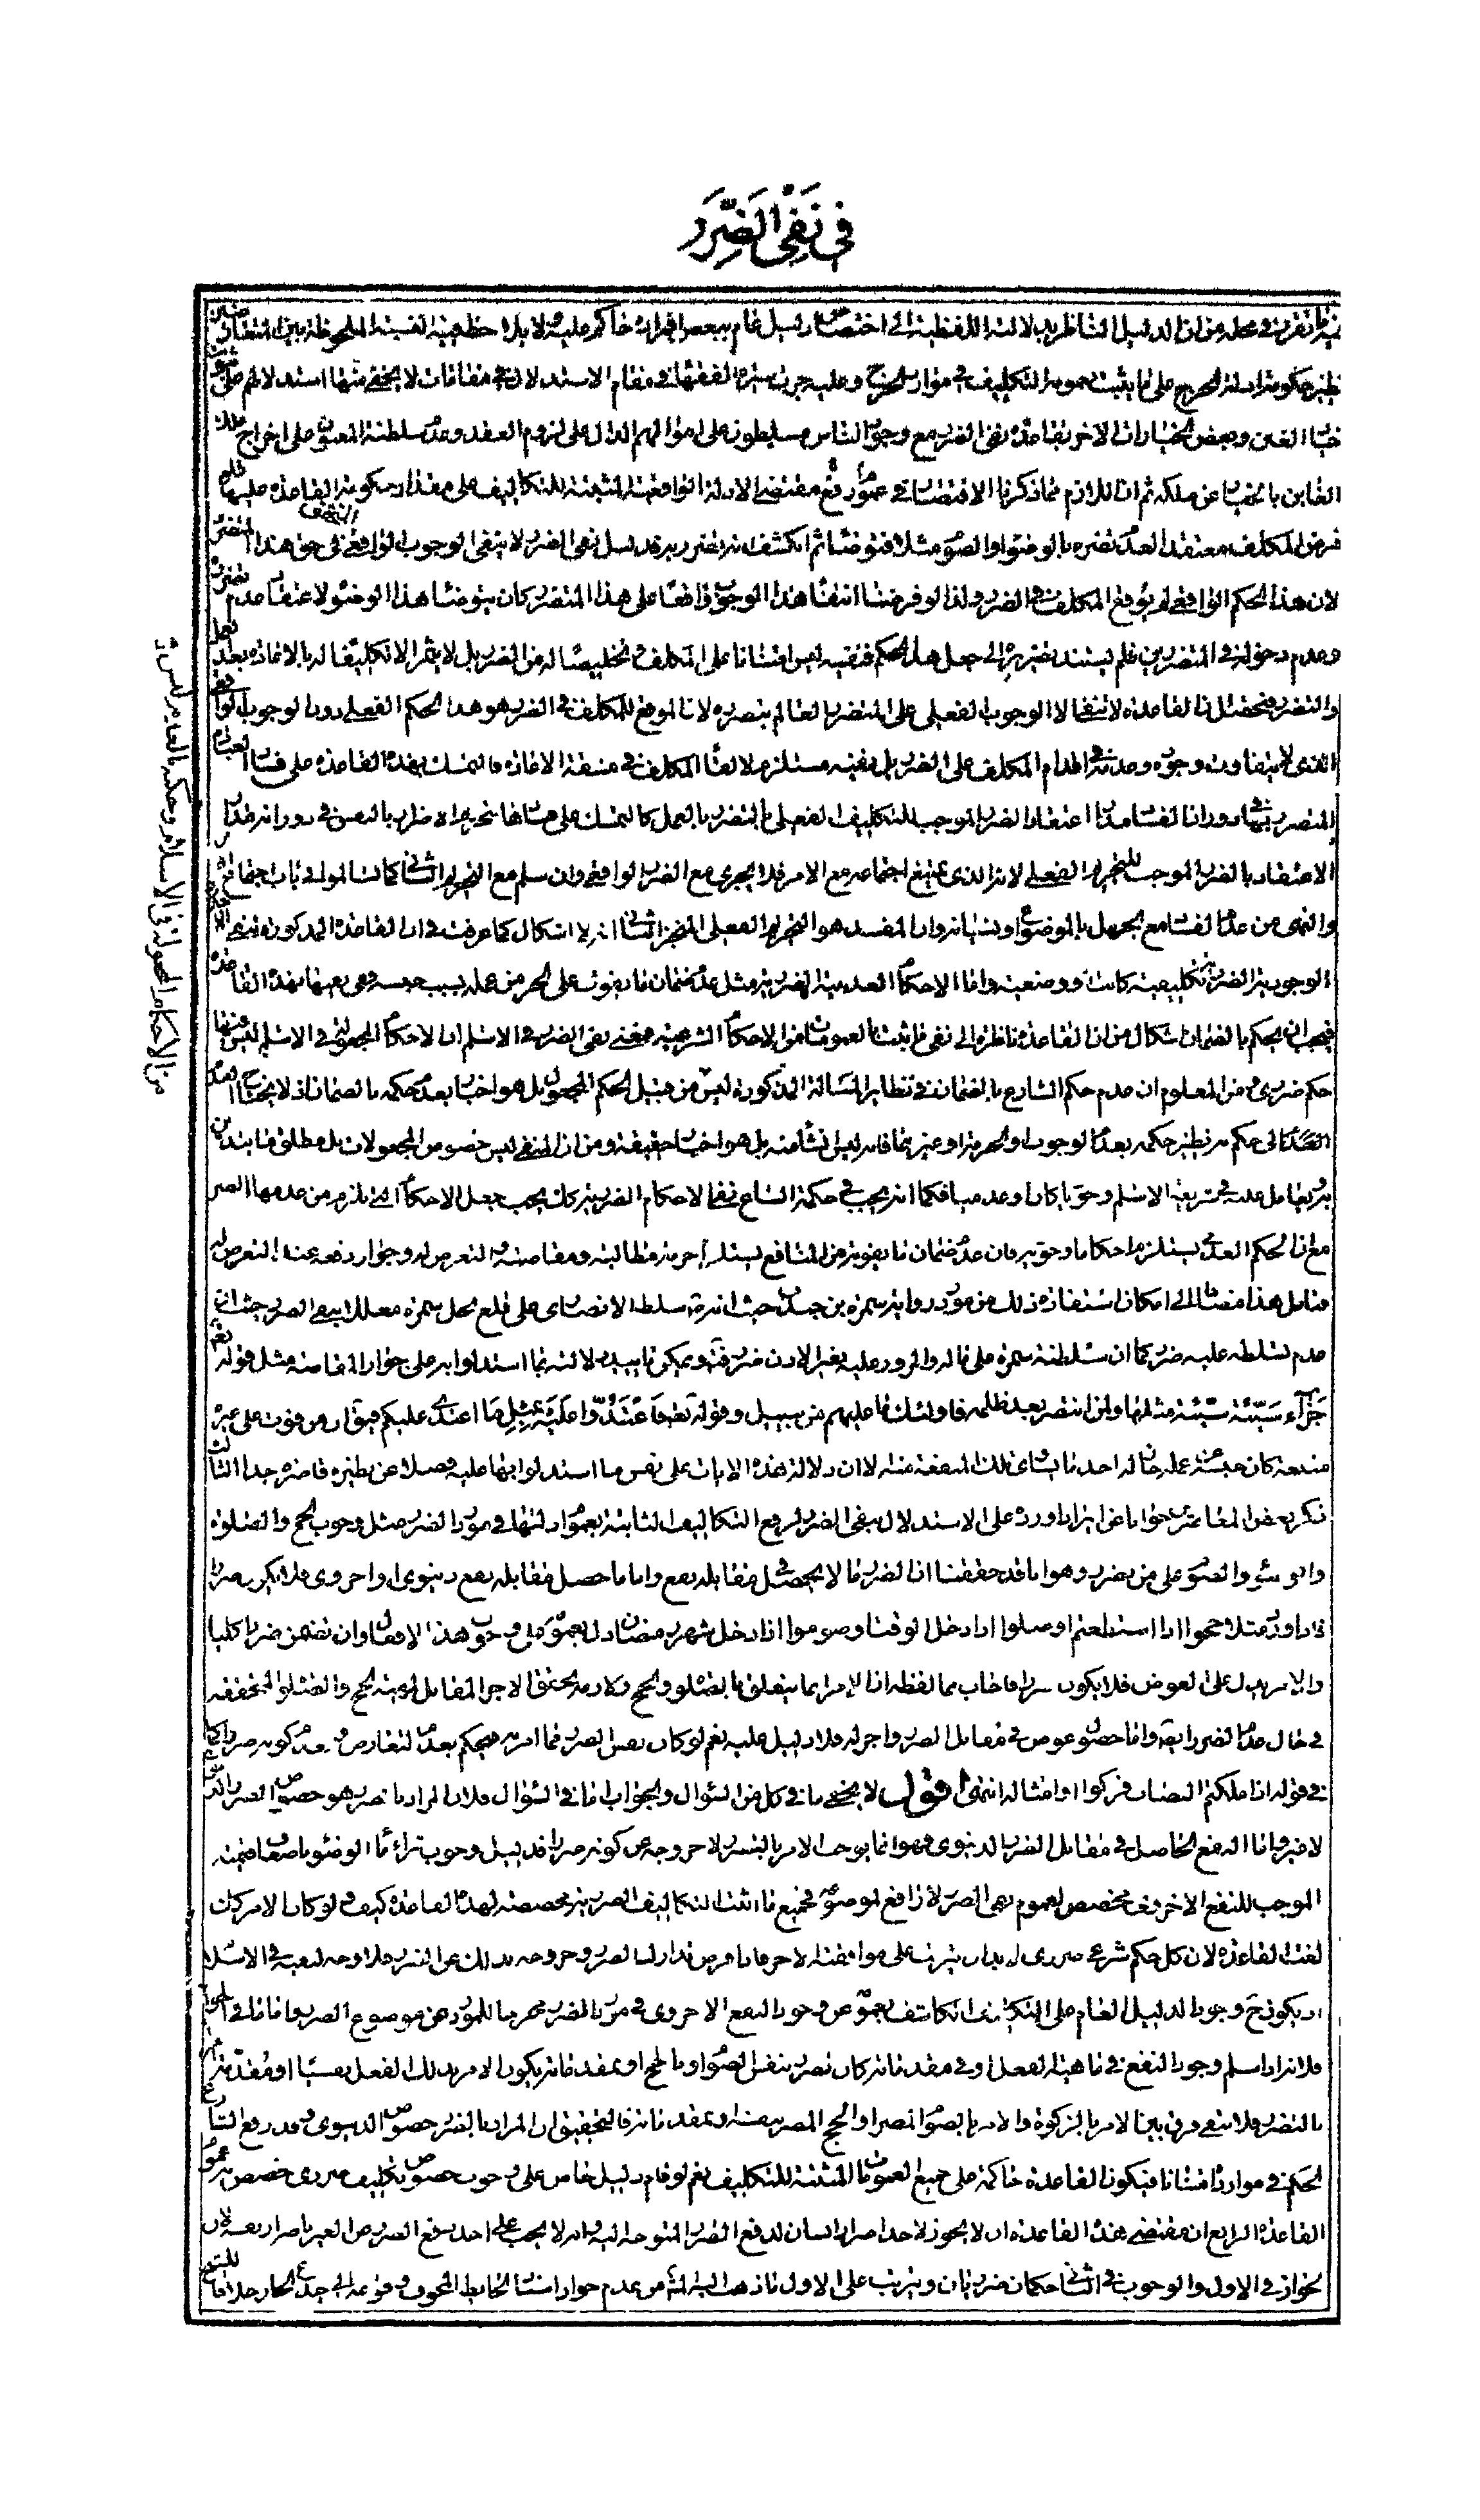 في نفي الضرر
تقرر في محله من ان الدليل الناظر بدلالته اللفظية الى اختصاص دليل عام ببعض افراده حاكم عليه لا يلاحظ فيه النسبة الملحوظة بين
نظير حكومة ادلة الحرج على ما يثبت بعمومه التكليف في موارد الحرج وعليه جرت سيرة الفقهاء في مقام الاستدلال في مقامات لا يخفى منها استدلالهم على ثبوت
خيار الغبن وبعض الخيارات الاخر بقاعدة نفي الضرر مع وجود الناس مسلطون على اموالهم الدال على لزوم العقد وعدم سلطنة المغبون على اخراج ملك
الغابن بالخيار عن ملكه ثم ان اللازم مما ذكرنا الاقتصار في رفع مقتضى الادلة الواقعية المثبتة للتكاليف على مقدار حكومة القاعدة عليها فلو
فرض المكلف معتقدا لعدم تضرره بالوضوء او الصوم مثلا فتوضأ ثم انكشف انه تضرر به فدليل نفي الضرر لا ينفي الوجوب الواقعي في حق هذا المتضرر
لان هذا الحكم الواقعي لم يوقع المكلف في الضرر ولذا لو فرضنا انتفاء هذا الوجوب واقعا على هذا المتضرر كان يتوضأ هذا الوضوء لاعتقاد عدم تضرره
وعدم دخوله في المتضررين فلم يستند تضرره الى جعل هذا الحكم فنفيه ليس امتنانا على المكلف وتخليصا له من الضرر بل لا يثمر الا تكليفا له بالاعادة بعد العمل
والتضرر فتحصل ان القاعدة لا تنفي الا الوجوب الفعلي على المتضرر العالم بتضرره لان الموقع للمكلف في الضرر هو هذا الحكم الفعلي دون الوجوب الواقعي
الذي لا يتفاوت وجوده وعدمه في اقدام المكلف على الضرر بل نفيه مستلزم لالقاء المكلف في مشقة الاعادة فالتمسك بهذه القاعدة على فساد العبادة
المتضرر بها دوران الفساد مدار اعتقاد الضرر الموجب للتكليف الفعلي بالتضرر بالعمل كالتمسك على فسادها بتحريم الاضرار بالنفس في دورانه مدار
الاعتقاد بالضرر الموجب للتحريم الفعلي لانه الذي يمتنع اجتماعه مع الامر فلا يجري مع الضرر الواقعي وان سلم مع التحريم كما في باب اجتماع الامر
والنهي من عدم الفساد مع الجهل بالموضوع او نسيانه وان المفسد هو التحريم الفعلي المنجز الثاني انه لا اشكال كما عرفت في ان القاعدة المذكورة تنفي الاحكام
الوجودية الضررية تكليفية كانت او وضعية واما الاحكام العدمية الضررية مثل عدم ضمان ما يفوت على الحر من عمله بسبب حبسه ففي نفيها بهذه القاعدة
فيجب ان يحكم بالضمان اشكال من ان القاعدة ناظرة الى نفي ما ثبت بالعمومات من الاحكام الشرعية فمعنى نفي الضرر في الاسلام ان الاحكام المجعولة في الاسلام ليس فيها
حكم ضرري ومن المعلوم ان عدم حكم الشارع بالضمان في نظائر المسألة المذكورة ليس من قبيل الحكم المجعول بل هو اخبار بعدم حكمه بالضمان اذ لا يحتاج العدم
الى حكم به نظير حكمه بعدم الوجوب او الحرمة او غيرهما فانه ليس انشاء منه بل هو اخبار حقيقة ومن ان المنفي ليس خصوص المجعولات بل مطلق ما يتدين
به ويعامل عليه في شريعة الاسلام وجوديا كان او عدميا فكما انه يجب في حكمة الشارع نفي الاحكام الضررية كذلك يجب جعل الاحكام التي يلزم من عدمها الضرر
مع ان الحكم العدمي يستلزم احكاما وجودية فان عدم ضمان ما يفوته من المنافع يستلزم حرمة مطالبته ومقاصته والتعرض له وجواز دفعه عند التعرض له
فتامل هذا مضافا الى امكان استفادة ذلك من مورد رواية سمرة بن جندب حيث انه سلط الانصاري على قلع نخل سمرة معللا بنفي الضرر حيث ان
عدم تسلطه عليه ضرر كما ان سلطنة سمرة على ماله والمرور عليه بغير الاذن ضرر فتأمل ويمكن تأييد دلالته بما استدلوا به على جواز المقاصة مثل قوله تعالى
جزاء سيئة سيئة مثلها ولمن انتصر بعد ظلمه فاولئك ما عليهم من سبيل وقوله تعالى فاعتدوا عليه بمثل ما اعتدى عليكم فيقال ان من فوت على غيره
منفعة كان حبسه عن عمله جاز له اخذ ما يساوي تلك المنفعة منه الا ان دلالة هذه الايات على نفس ما استدلوا بها عليه فضلا عن نظيره قاصرة جدا الثالث
ذكر بعض المعاصرين جوابا عن ايراد اورده على الاستدلال بنفي الضرر لرفع التكاليف الثابتة بعموم ادلتها في مورد الضرر مثل وجوب الحج والصلوة
والوضوء والصوم على من يضر به وهو انا قد حققنا ان الضرر ما لا يحصل في مقابله نفع واما ما حصل مقابله نفع دنيوي او اخروي فلا يكون ضررا
فاذا ورد مثلا حجوا اذا استطعتم او صلوا اذا دخل الوقت او صوموا اذا دخل شهر رمضان دل بعمومه على وجوب هذه الافعال وان تضمن ضررا كليا
والامر يدل على العوض فلا يكون ضررا فاجاب بما لفظه ان الامر انما يتعلق بالصلوة والحج ولازمه تحقق الاجر المقابل لماهية الحج والصلوة المتحققة
في حال عدم الضرر ايضا واما حصول عوض في مقابل الضرر واجر له فلا دليل عليه نعم لو كان نفس الضرر مما امر به فيحكم بعدم التعارض وبعدم كونه ضررا كما
في قوله اذا ملكتم النصاب فزكوا او امثاله انتهى اقول لا يخفى ما في كل من السؤال والجواب اما في السؤال فلان المراد بالضرر هو خصوص الضرر الدنيوي
لا غير واما النفع الحاصل في مقابل الضرر الدنيوي فهو انما يوجب الامر بالتضرر لا خروجه عن كونه ضررا فدليل وجوب شراء ماء الوضوء باضعاف قيمته
الموجب للنفع الاخروي مخصص لعموم نفي الضرر لا رافع لموضوعه فجميع ما اثبت التكاليف الضررية مخصصة لهذه القاعدة كيف ولو كان الامر كذلك
لغت القاعدة لان كل حكم شرعي ضرري لا بد ان يترتب على موافقته الاجر فاذا فرض تدارك الضرر وخروجه بذلك عن الضرر فلا وجه لنفيه في الاسلام
اذ يكون ح وجود الدليل العام على التكليف الكاشف بعمومه عن وجود النفع الاخروي في مورد الضرر مخرجا للمورد عن موضوع الضرر واما ما في الجواب
فلانه اذا سلم وجود النفع في ماهية الفعل او في مقدماته كان تضرر بنفس الصوم او بالحج او بمقدماته يكون الامر بذلك الفعل نفسيا او مقدمة
بالتضرر فلا ينبغي فرق بين الامر بالزكوة والامر بالصوم المضر او الحج المضر بنفسه او بمقدماته فالتحقيق ان المراد بالضرر خصوص الدنيوي وقد رفع الشارع
الحكم في موارده امتنانا فيكون القاعدة حاكمة على جميع العمومات المثبتة للتكليف نعم لو قام دليل خاص على وجوب خصوص تكليف ضرري خصص به عموم
القاعدة الرابع ان مقتضى هذه القاعدة ان لا يجوز لاحد اضرار انسان لدفع الضرر المتوجه اليه وانه لا يجب على احد دفع الضرر عن الغير باضرار نفسه لان
الجواز في الاول والوجوب في الثاني حكمان ضرريان ويترتب على الاول ما ذهب اليه المشهور من عدم جواز اسناد الحائط المخوف وقوعه الى جذع الجار خلافا للشيخ
من الاحكام المجعولة في الاسلام وحكمه بالعدم ليس